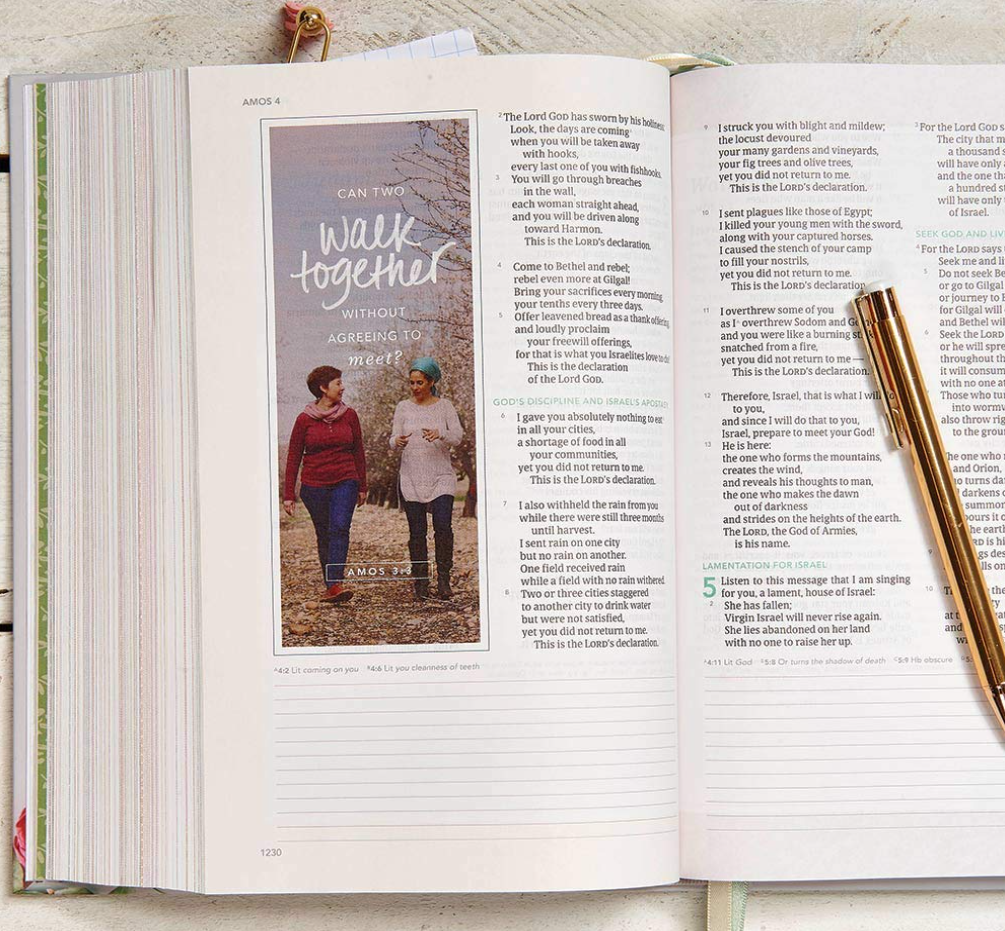 AMOS 4
CAN TWO
walk
together
WITHOUT
AGREEING TO
meet?
AMOS 3:3
2 The Lord GOD has sworn by his holiness:
Look, the days are coming^A
when you will be taken away
with hooks,
every last one of you with fishhooks.
3 You will go through breaches
in the wall,
each woman straight ahead,
and you will be driven along
toward Harmon.
This is the LORD's declaration.
4 Come to Bethel and rebel;
rebel even more at Gilgal!
Bring your sacrifices every morning,
your tenths every three days.
5 Offer leavened bread as a thank offering,
and loudly proclaim
your freewill offerings,
for that is what you Israelites love to do!
This is the declaration
of the Lord GOD.
GOD'S DISCIPLINE AND ISRAEL'S APOSTASY
6 I gave you absolutely nothing to eat
in all your cities,
a shortage of food in all
your communities,
yet you did not return to me.
This is the LORD's declaration.
7 I also withheld the rain from you
while there were still three months
until harvest.
I sent rain on one city
but no rain on another.
One field received rain
while a field with no rain withered
8 Two or three cities staggered
to another city to drink water
but were not satisfied,
yet you did not return to me.
This is the LORD's declaration.
^A4:2 Lit coming on you ^B4:6 Lit you cleanness of teeth
1230
9 I struck you with blight and mildew;
the locust devoured
your many gardens and vineyards,
your fig trees and olive trees,
yet you did not return to me.
This is the LORD's declaration.
10 I sent plagues like those of Egypt;
I killed your young men with the sword,
along with your captured horses.
I caused the stench of your camp
to fill your nostrils,
yet you did not return to me.
This is the LORD's declaration
11 I overthrew some of you
as I^A overthrew Sodom and
and you were like a burning
snatched from a fire,
yet you did not return to me —
This is the LORD's declaration.
12 Therefore, Israel, that is what I will
to you,
and since I will do that to you,
Israel, prepare to meet your God!
13 He is here:
the one who forms the mountains,
creates the wind,
and reveals his thoughts to man,
the one who makes the dawn
out of darkness
and strides on the heights of the earth.
The LORD, the God of Armies,
is his name.
LAMENTATION FOR ISRAEL
5 Listen to this message that I am singing
for you, a lament, house of Israel:
2 She has fallen;
Virgin Israel will never rise again.
She lies abandoned on her land
with no one to raise her up.
^A4:11 Lit God ^B5:8 Or turns the shadow of death ^C5:9 Hb obscure
3 For the Lord GOD
The city that
a thousand
will have only
and the one
a hundred
will have only
of Israel.
SEEK GOD AND
4 For the LORD says
Seek me and
5 Do not seek
or go to Gilgal
or journey to
for Gilgal will
and Bethel
6 Seek the LORD
or he will
throughout
it will
with no one at
Those who
into
also throw
to the
one who
and Orion,
turns
darkens
10
at
and